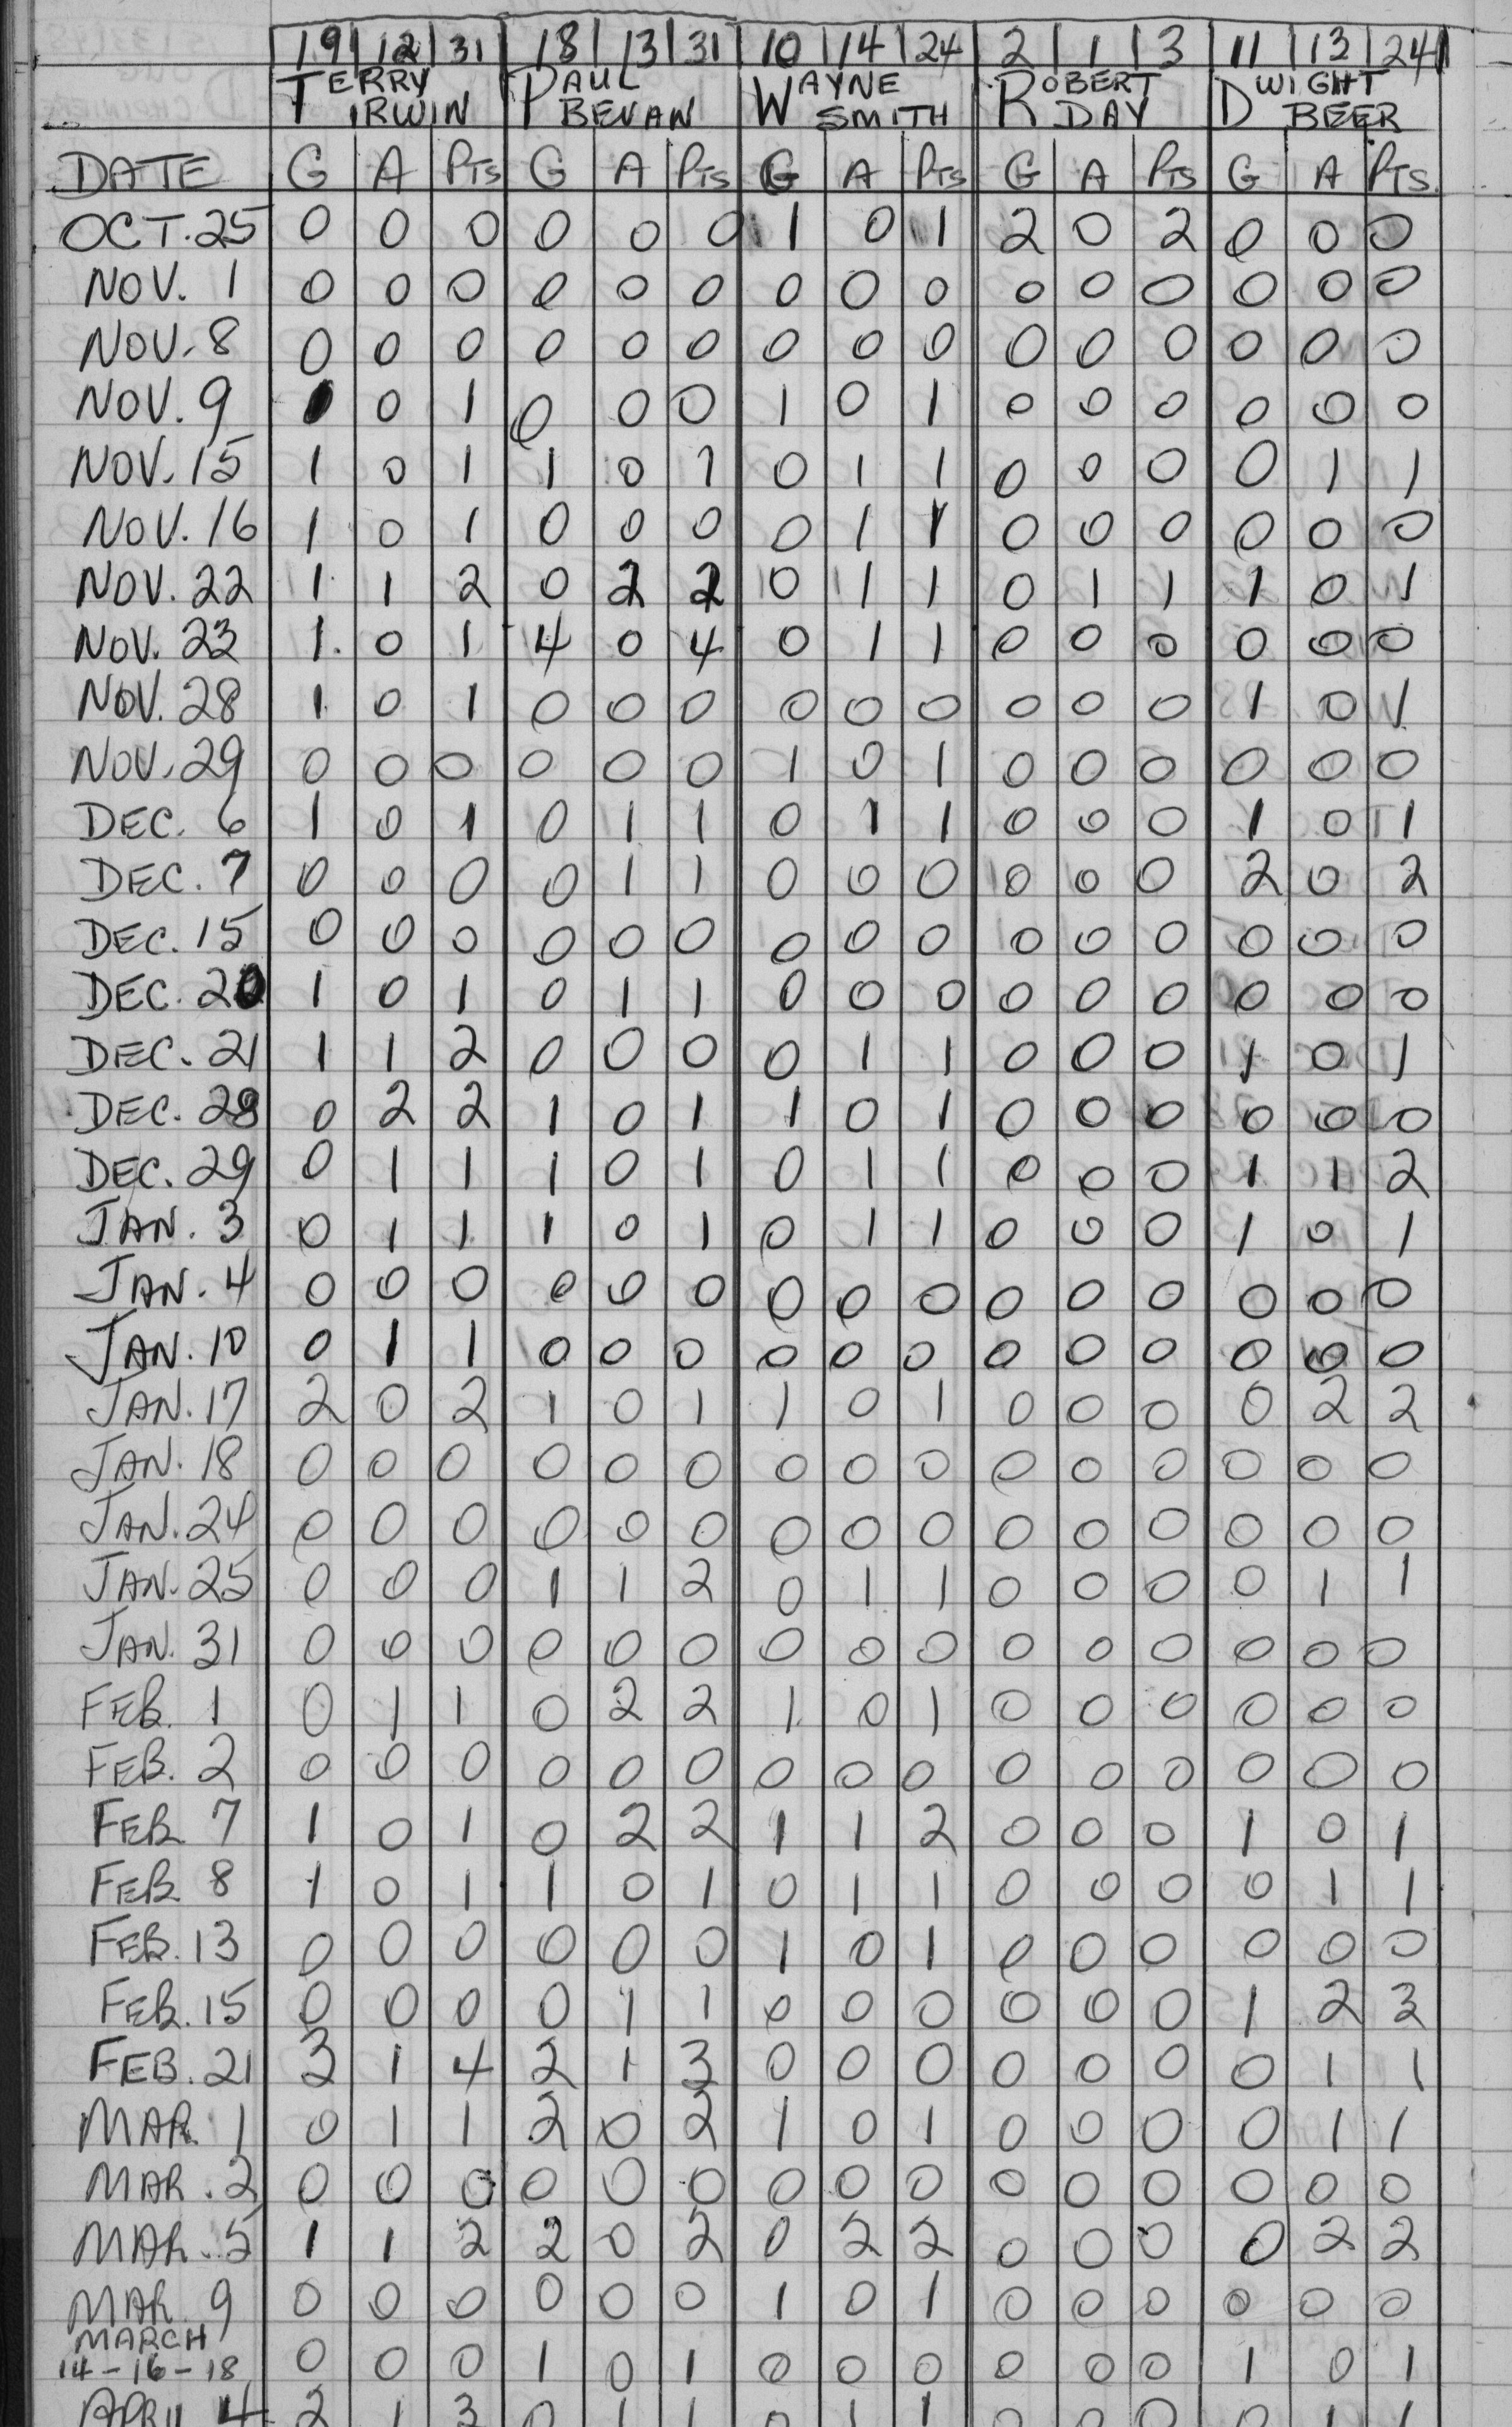 19 12 31 18 13 31 10 14 24 2 1 3 11 13 24
TERRY PAUL WAYNE ROBERT DWIGHT
IRWIN BEVAN SMITH DAY BEER
DATE G A PTS G A PTS G A PTS G A PTS G A PTS.
OCT. 25 0 0 0 0 0 0 1 0 1 2 0 2 0 0 0
NOV. 1 0 0 0 0 0 0 0 0 0 0 0 0 0 0 0
NOV. 8 0 0 0 0 0 0 0 0 0 0 0 0 0 0 0
NOV. 9 1 0 1 0 0 0 1 0 1 0 0 0 0 0 0
NOV. 15 1 0 1 1 0 1 0 1 1 0 0 0 0 1 1
NOV. 16 1 0 1 0 0 0 0 1 1 0 0 0 0 0 0
NOV. 22 1 1 2 0 2 2 0 1 1 0 1 1 1 0 1
NOV. 23 1 0 1 4 0 4 0 1 1 0 0 0 0 0 0
NOV. 28 1 0 1 0 0 0 0 0 0 0 0 0 1 0 1
NOV. 29 0 0 0 0 0 0 1 0 1 0 0 0 0 0 0
DEC. 6 1 0 1 0 1 1 0 1 1 0 0 0 1 0 1
DEC. 7 0 0 0 0 1 1 0 0 0 0 0 0 2 0 2
DEC. 15 0 0 0 0 0 0 0 0 0 0 0 0 0 0 0
DEC. 20 1 0 1 0 1 1 0 0 0 0 0 0 0 0 0
DEC. 21 1 1 2 0 0 0 0 1 1 0 0 0 1 0 1
DEC. 28 0 2 2 1 0 1 1 0 1 0 0 0 0 0 0
DEC. 29 0 1 1 1 0 1 0 1 1 0 0 0 1 1 2
JAN. 3 0 1 1 1 0 1 0 1 1 0 0 0 1 0 1
JAN. 4 0 0 0 0 0 0 0 0 0 0 0 0 0 0 0
JAN. 10 0 1 1 0 0 0 0 0 0 0 0 0 0 0 0
JAN. 17 2 0 2 1 0 1 1 0 1 0 0 0 0 2 2
JAN. 18 0 0 0 0 0 0 0 0 0 0 0 0 0 0 0
JAN. 24 0 0 0 0 0 0 0 0 0 0 0 0 0 0 0
JAN. 25 0 0 0 1 1 2 0 1 1 0 0 0 0 1 1
JAN. 31 0 0 0 0 0 0 0 0 0 0 0 0 0 0 0
FEB. 1 0 1 1 0 2 2 1 0 1 0 0 0 0 0 0
FEB. 2 0 0 0 0 0 0 0 0 0 0 0 0 0 0 0
FEB 7 1 0 1 0 2 2 1 1 2 0 0 0 1 0 1
FEB 8 1 0 1 1 0 1 0 1 1 0 0 0 0 1 1
FEB. 13 0 0 0 0 0 0 1 0 1 0 0 0 0 0 0
FEB. 15 0 0 0 0 1 1 0 0 0 0 0 0 1 2 3
FEB. 21 3 1 4 2 1 3 0 0 0 0 0 0 0 1 1
MAR. 1 0 1 1 2 0 2 1 0 1 0 0 0 0 1 1
MAR. 2 0 0 0 0 0 0 0 0 0 0 0 0 0 0 0
MAR. 5 1 1 2 2 0 2 0 2 2 0 0 0 0 2 2
MAR 9 0 0 0 0 0 0 1 0 1 0 0 0 0 0 0
MARCH
14-16-18 0 0 0 1 0 1 0 0 0 0 0 0 1 0 1
APRIL 4 2 1 3 0 1 1 0 1 1 0 0 0 0 1 1